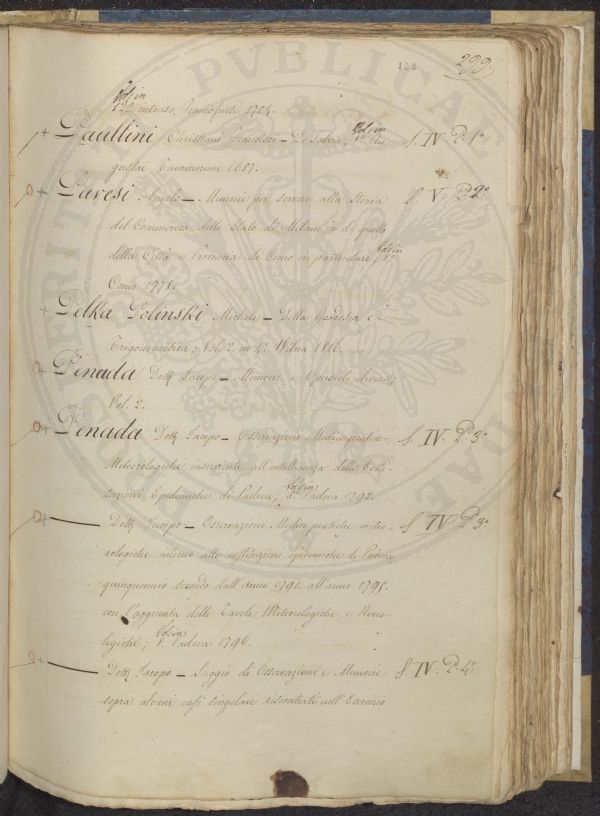 299.
Vol. in 12° Francofurti 1704.
Paullini Christiani Francisci – De Jalapa; Vol. in 8° Au- S. IV. P. 1ª
gustae Taurinorum 1687.
Pavesi Angelo – Memorie per servire alla Storia S. V. P. 2ª
del Commercio dello stato di Milano e di quello
della Città e Provincia di Como in particolare; Vol. in 8°
Como 1778.
Pelka Polinski Michele – Della Geodesia e
Trigonometria; Vol. 2. in 4° Wilna 1816.
Penada Dott. Jacopo – Memorie e Opuscoli diversi;
Vol. 2.
Penada Dott. Jacopo – Osservazioni Medico-pratico- S. IV. P. 3ª
Meteorologiche inservienti all'intelligenza delle Costi-
tuzioni Epidemiche di Padova; Vol. in 8° Padova 1792.
— Dott. Jacopo – Osservazioni Medico pratiche meteo- S. IV. P. 3ª
rologiche intorno alle costituzioni epidemiche di Padova
quinquennio secondo dall'anno 1791. all'anno 1795.
con l'aggiunta delle Tavole Meteorologiche, e Necro-
logiche; Vol. in 8° Padova 1796.
— Dott. Jacopo – Saggio di Osservazioni e Memorie S. IV. P. 4ª
sopra alcuni casi singolari riscontrati nell'Esercizio